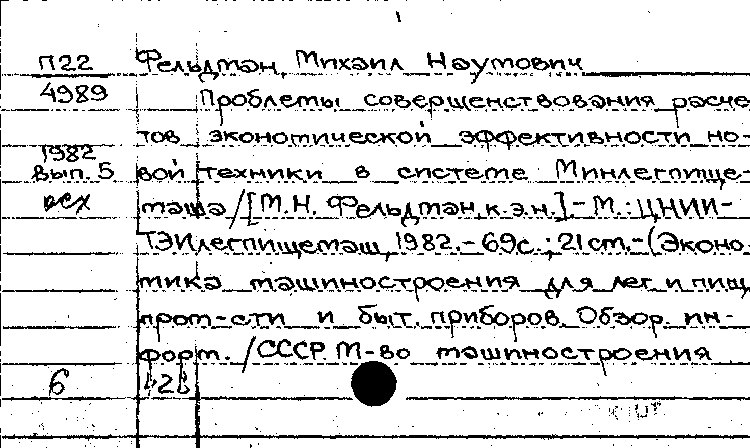 П22 Фельдман, Михаил Наумович
4989 Проблемы совершенствования расче
тов экономической эффективности но-
1982
вып. 5 вой техники в системе Минлегпище-
маша/[М.Н. Фельдман, к.э.н.].- М.: ЦНИИ-
ТЭИлегпищемаш, 1982.- 69с.; 21см.- (Эконо-
мика машиностроения для лег. и пищ.
пром-сти и быт. приборов. Обзор. ин-
форм. /СССР. М-во машиностроения
6